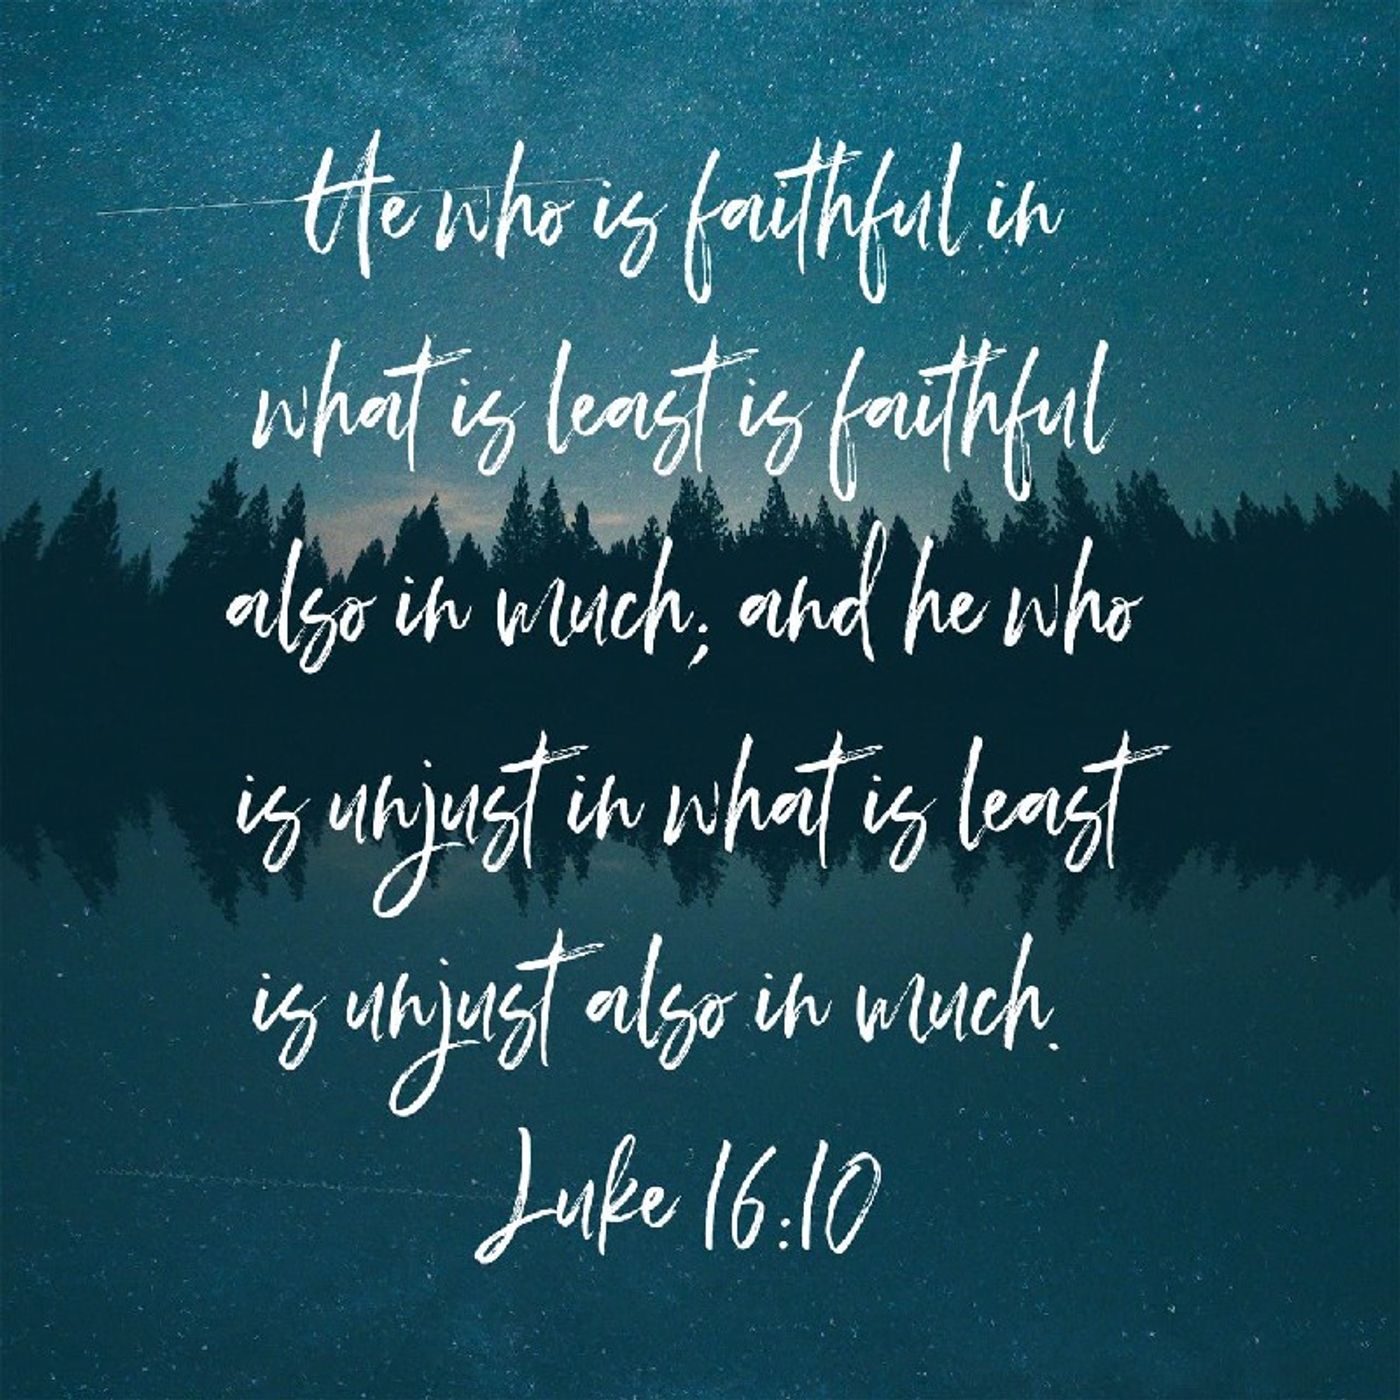 He who is faithful in
what is least is faithful
also in much; and he who
is unjust in what is least
is unjust also in much.
Luke 16:10